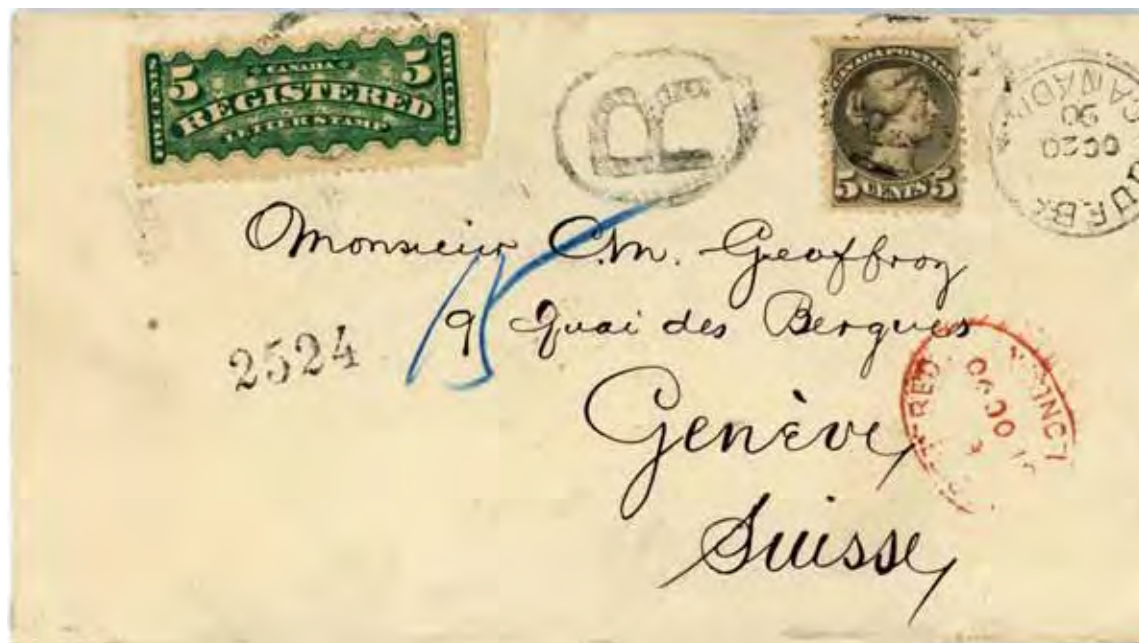 5 CANADA 5
REGISTERED
LETTER STAMP
FIVE CENTS
FIVE CENTS
R
CANADA POSTAGE
5 CENTS 5
CANADA
OC 20
90
Monsieur C.M. Geoffroy
9 Quai des Bergues
Genève
Suisse
2524
15